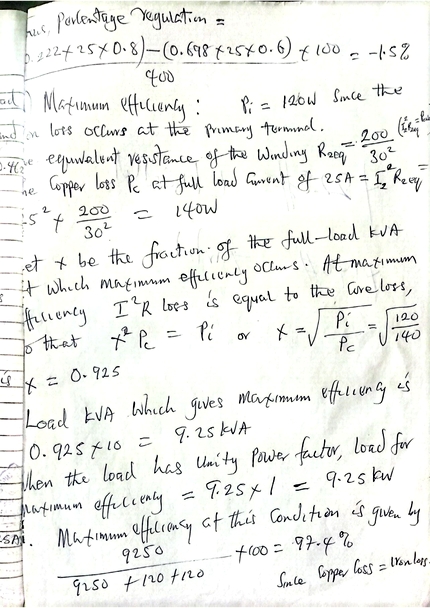 hus, Percentage regulation =
0.222×25×0.8)−(0.698×25×0.6) × 100 = −1.5%
400
Maximum efficiency: Pi = 120W Since the
on loss occurs at the primary terminal.
equivalent resistance of the Winding R2eq = 200
30²
Copper loss Pc at full load Current of 25A = I2² R2eq =
5² × 200 = 140W
30²
et x be the fraction of the full-load KVA
t which maximum efficiency occurs. At maximum
fficiency I²R loss is equal to the Core loss,
o that x²Pc = Pi or x = √Pi/Pc = √120/140
x = 0.925
Load KVA which gives maximum efficiency is
0.925×10 = 9.25KVA
When the load has Unity Power factor, load for
maximum efficiency = 9.25×1 = 9.25kW
Maximum efficiency at this Condition is given by
9250 ×100 = 97.4%
9250 + 120 + 120
Since Copper loss = Iron loss.